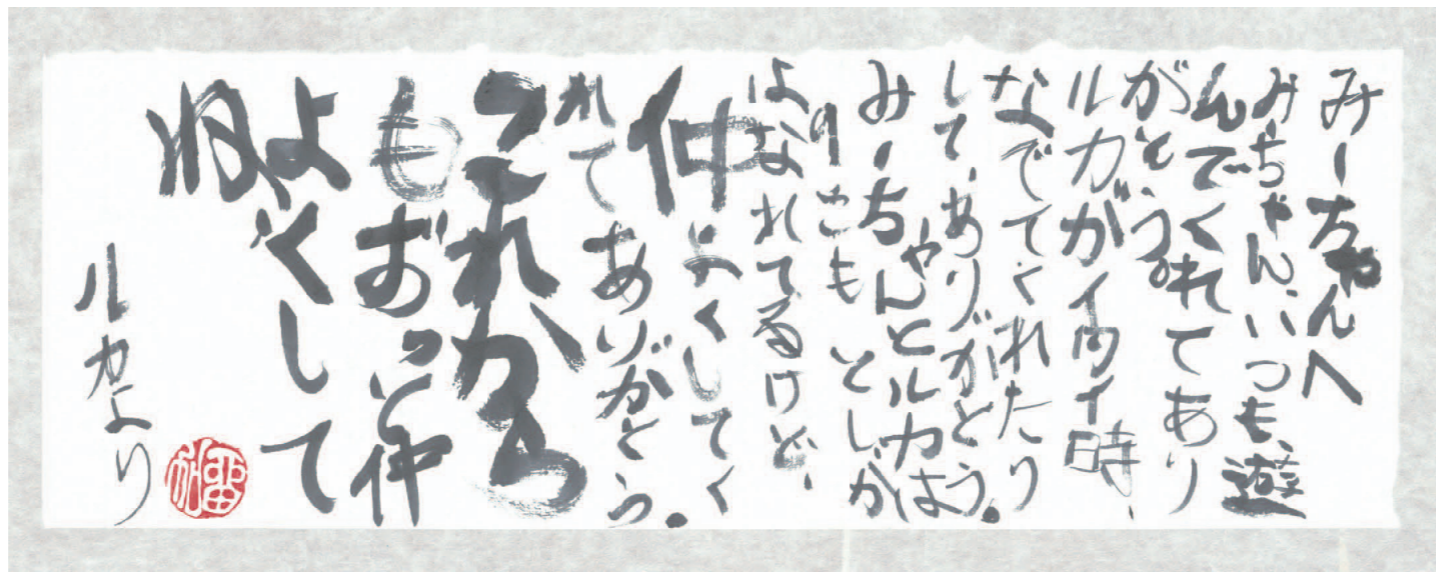 みーちゃんへ
みーちゃん、いつも、遊
んでくれてあり
がとう。
ルカがイタイ時、
なでてくれたり
して、ありがとう。
みーちゃんとルカは
11こも としが
はなれてるけど、
仲よくしてく
れてありがとう。
これから
もずっと仲
よくして
ね
ルカより